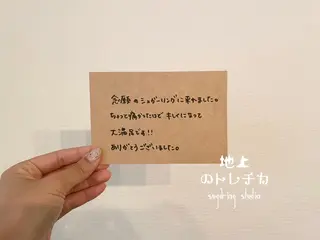 念願のシュガーリングに来れました。
ちょっと痛かったけど キレイになって
大満足です!!
ありがとうございました。
地上
のトレチカ
sugaring studio